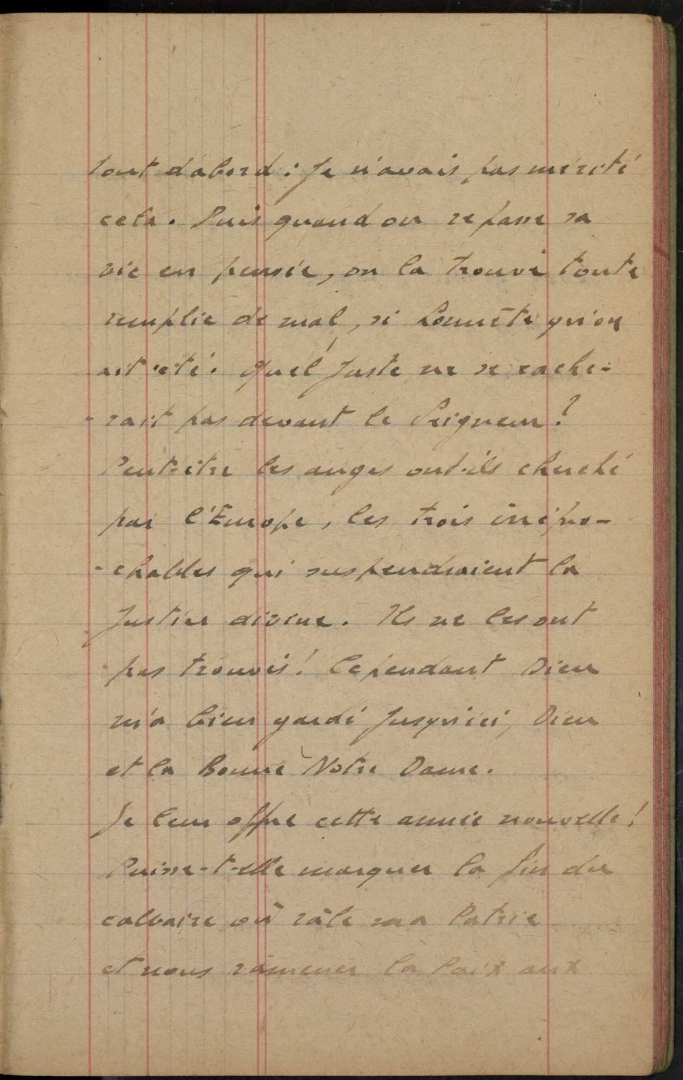 tout d'abord : je n'avais pas mérité
cela. Puis quand on repasse sa
vie en pensée, on la trouve toute
remplie de mal, si honnête qu'on
ait été. Quel juste ne se cache-
-rait pas devant le Seigneur ?
Peut-être les anges ont-ils cherché
par l'Europe, les trois irrépro-
-chables qui suspendraient la
Justice divine. Ils ne les ont
pas trouvés ! Cependant Dieu
m'a bien gardé jusqu'ici, Dieu
et la Bonne Notre Dame.
Je leur offre cette année nouvelle !
Puisse-t-elle marquer la fin du
calvaire où râle ma Patrie
et nous ramener la Paix aux